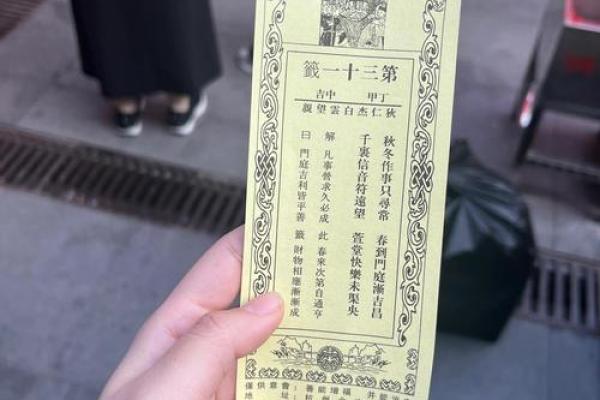 第三十一籤
丁甲 中吉
狄仁杰白雲望親
秋冬作事只尋常 春到門庭漸吉昌
千裏信音符遠望 萱堂快樂未渠央
解 凡事營求久必成 此 春來次第自通亨
曰 門庭吉利皆平善 籤 財物相應漸漸成